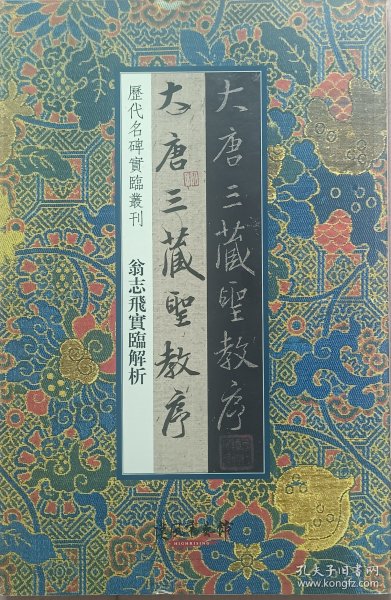 大唐三藏聖教序
大唐三藏聖教序
歷代名碑實臨叢刊
翁志飛實臨解析
HIGHRISING
孔夫子旧书网
book.kongfz.com